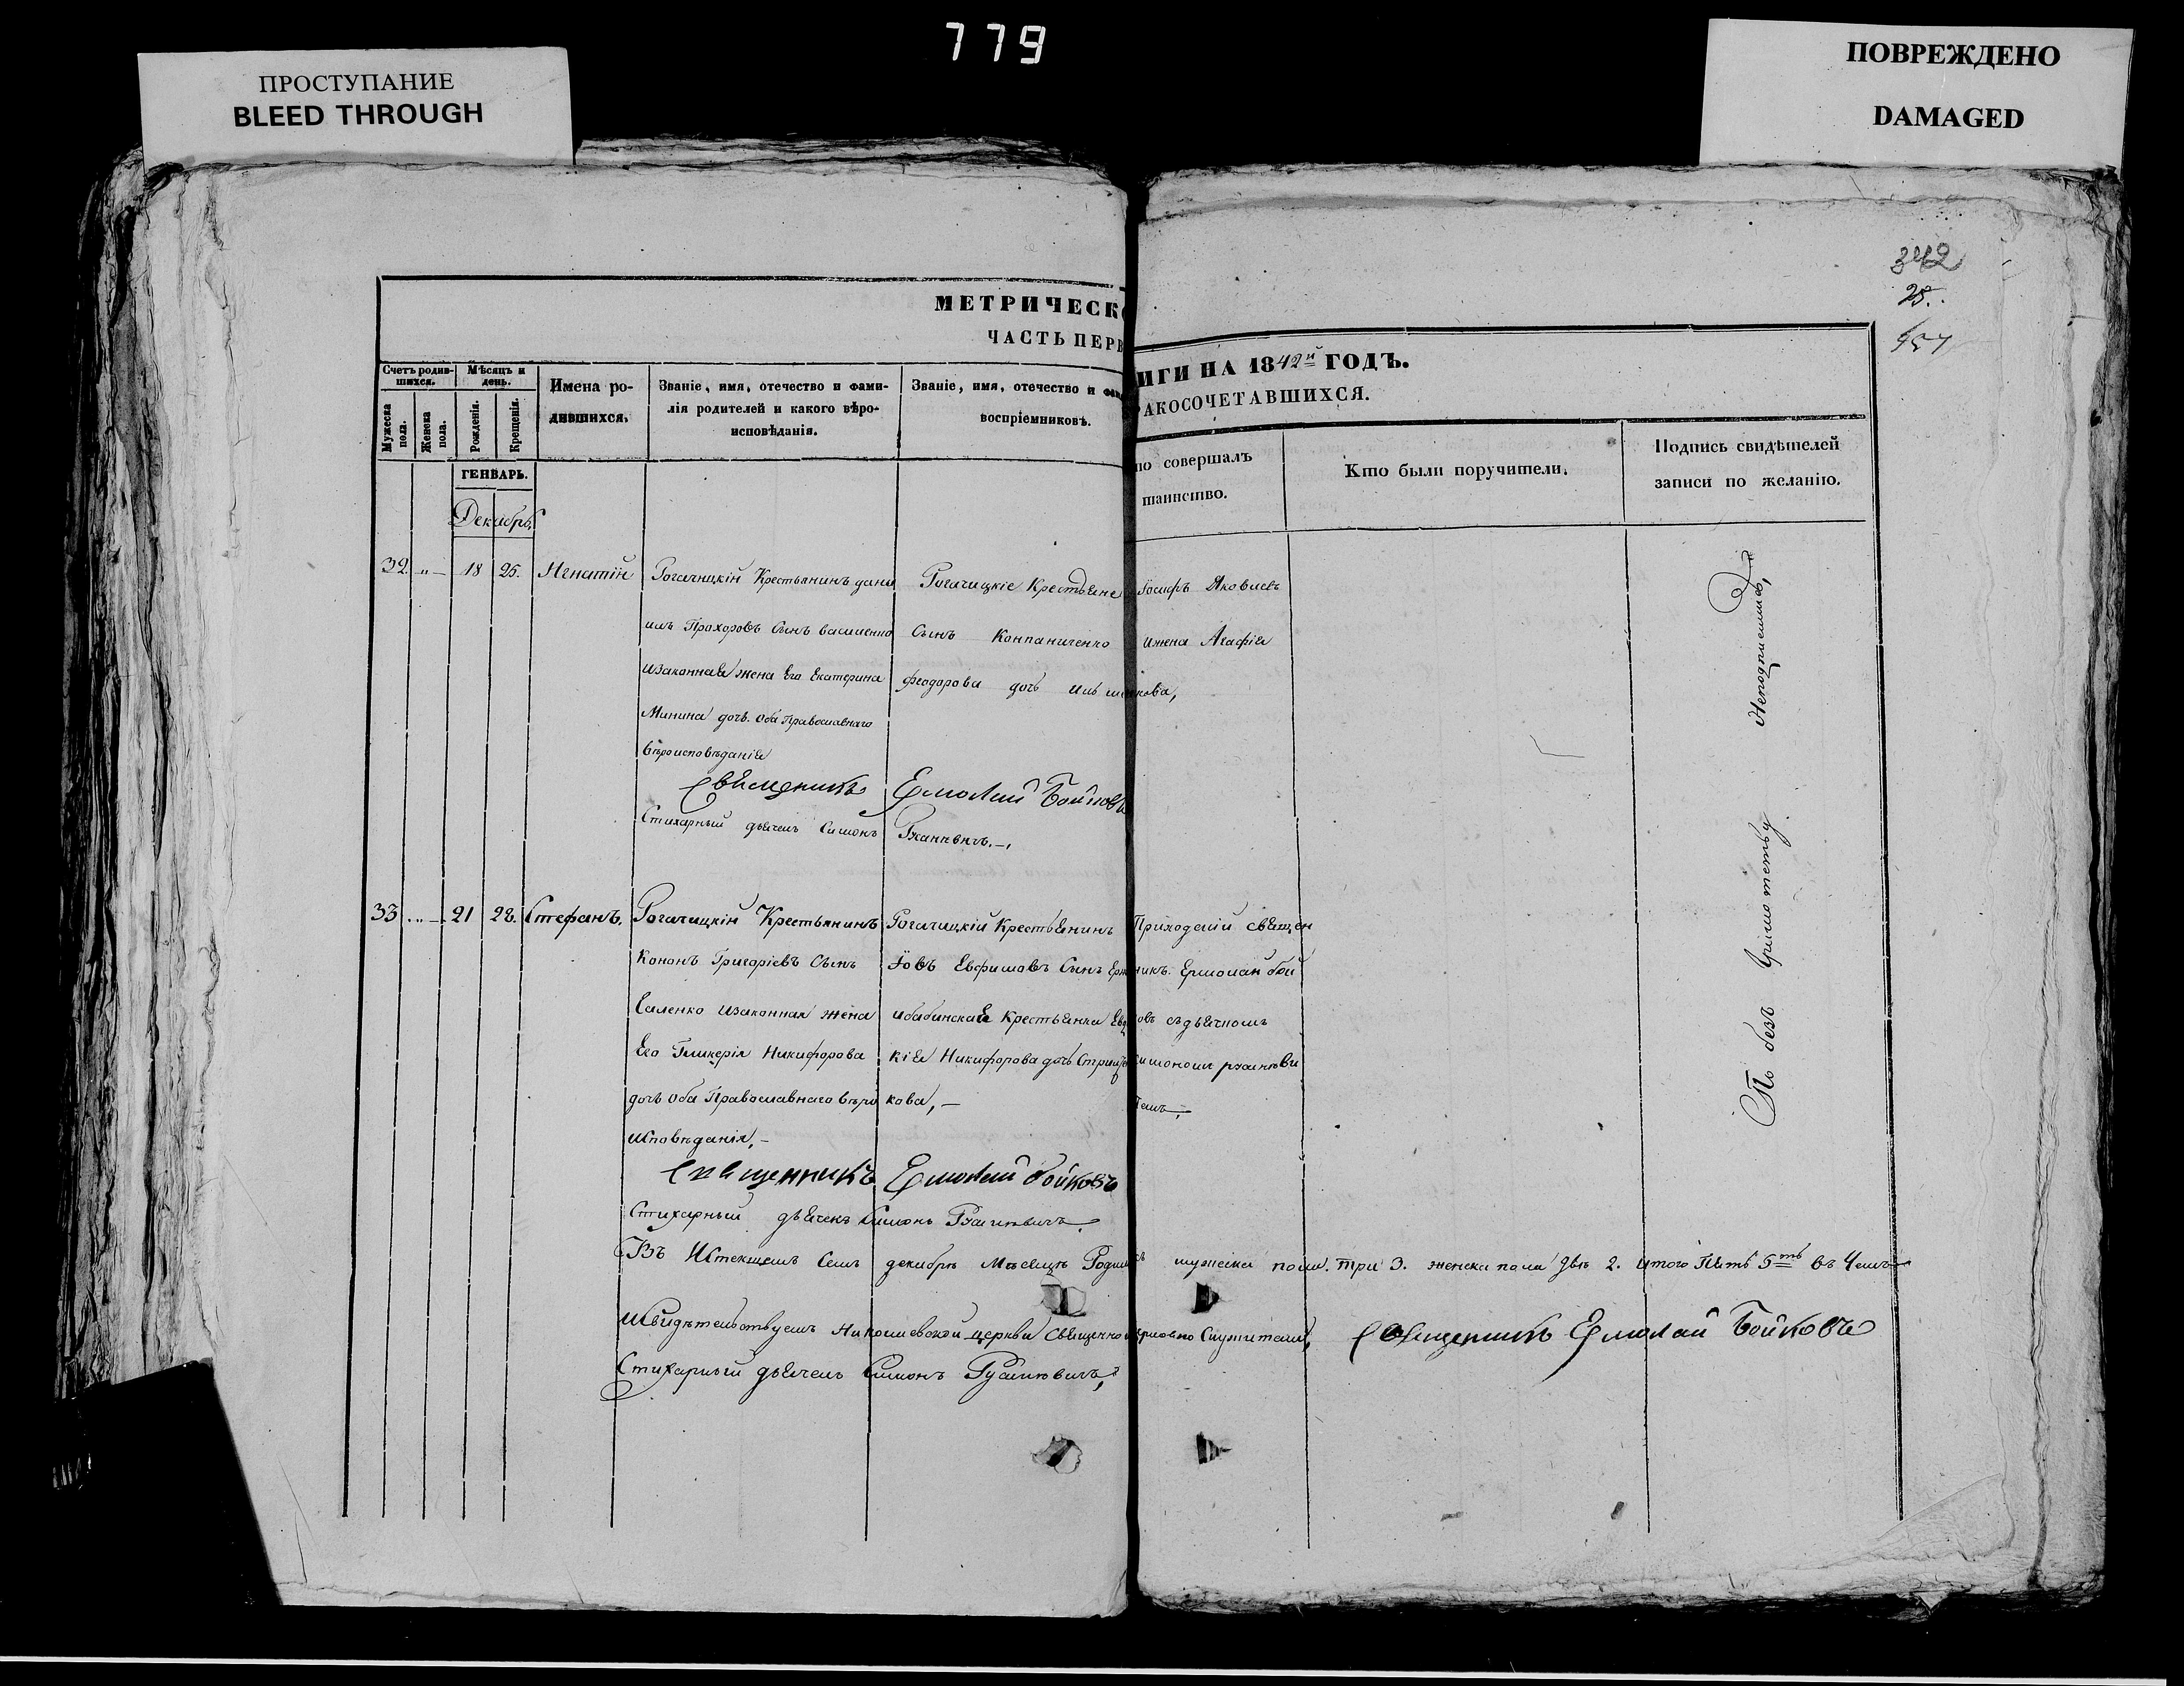 779
ПРОСТУПАНИЕ
BLEED THROUGH
ПОВРЕЖДЕНО
DAMAGED
342
25.
МЕТРИЧЕСКО
ЧАСТЬ ПЕРВ
ИГИ НА 1842й ГОДЪ.
АКОСОЧЕТАВШИХСЯ.
Счетъ родив-
шихся.
Мужеска пола.
Женска пола.
Мѣсяцъ и
день.
Рожденія.
Крещенія.
Имена ро-
дившихся.
Званіе, имя, отечество и фами-
лія родителей и какого вѣро-
исповѣданія.
Званіе, имя, отечество и фам
воспріемниковъ.
то совершалъ
таинство.
Кто были поручители.
Подпись свидѣтелей
записи по желанію.
ГЕНВАРЬ.
Декабрь
32. „ — 18 25. Игнатій
Рогачицкій Крестьянинъ дани
илъ Прохоровъ Сынъ василенко
изаконная жена Его Екатерина
Минина дочь. Оба Православнаго
вѣроисповѣданія
Рогачицкіе Крестьяне Іосифъ Яковлевъ
Сынъ Компаниченко ижена Агафія
феодорова дочь
Священникъ Ермолай Бойковъ
Стихарный дьячекъ Симонъ
33. „ — 21 28. Стефанъ.
Рогачицкій Крестьянинъ
Кононъ Григоріевъ Сынъ
изаконная жена
Его Гликерія Никифорова
дочь Оба Православнаго вѣро
исповѣданія, —
Рогачицкій Крестьянинъ
Іовъ Евфимовъ Сынъ
Крестьянка
кія Никифорова дочь
кова, —
Приходскій священ
никъ. Ермолай бой
овъ съдьячкомъ
симономъ
Священникъ Ермолай бойковъ
Стихарный дьячекъ Симонъ
Въ Истекшемъ Семъ декабрѣ Мѣсяцѣ Родилось мужеска пола. три 3. женска пола двѣ 2. итого Пять 5ть въ Чемъ
иСвидѣтельствуемъ Николаевской церкви Священно церковно Служители, Священникъ Ермолай Бойковъ
Стихарный дьячекъ Симонъ
По безъ Неподписались,